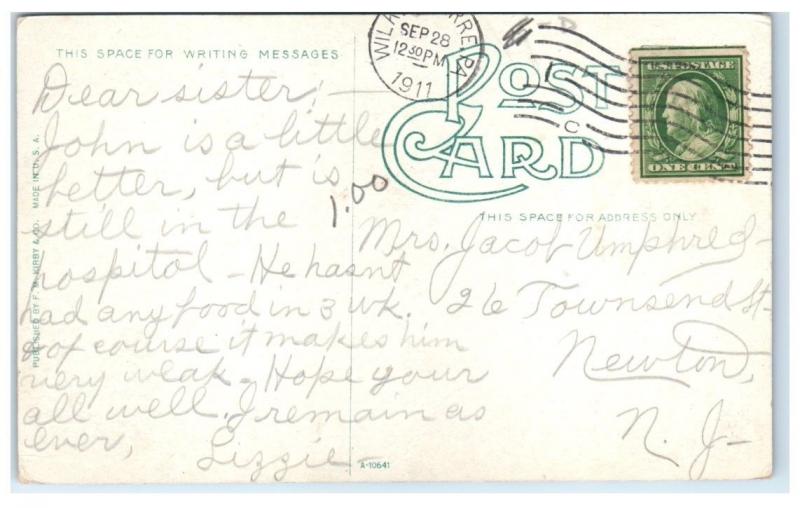 THIS SPACE FOR WRITING MESSAGES
Dear sister,—
John is a little
better, but is
still in the
hospital – He hasnt
had any food in 3 wk.
& of course it makes him
very weak. Hope your
all well. I remain as
ever,
Lizzie –
1.00
PUBLISHED BY F. M. KIRBY & CO. MADE IN U. S. A.
A-10641
WILKES-BARRE PA
SEP 28
12 30 PM
1911
POST
CARD
U.S. POSTAGE
ONE CENT
THIS SPACE FOR ADDRESS ONLY
Mrs. Jacob Umphred –
26 Townsend St –
Newton,
N. J –